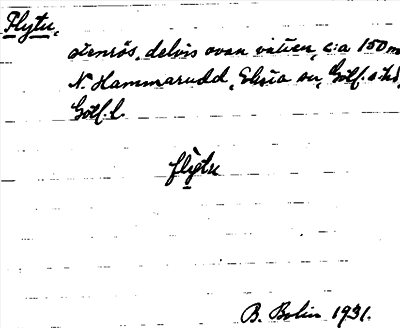 Flytu,
stenrös, delvis ovan vatten, c:a 150 m
N. Hammarudd, Eksta sn, Gotl. s. hd,
Gotl. l.
flytu
B. Bolin 1931.